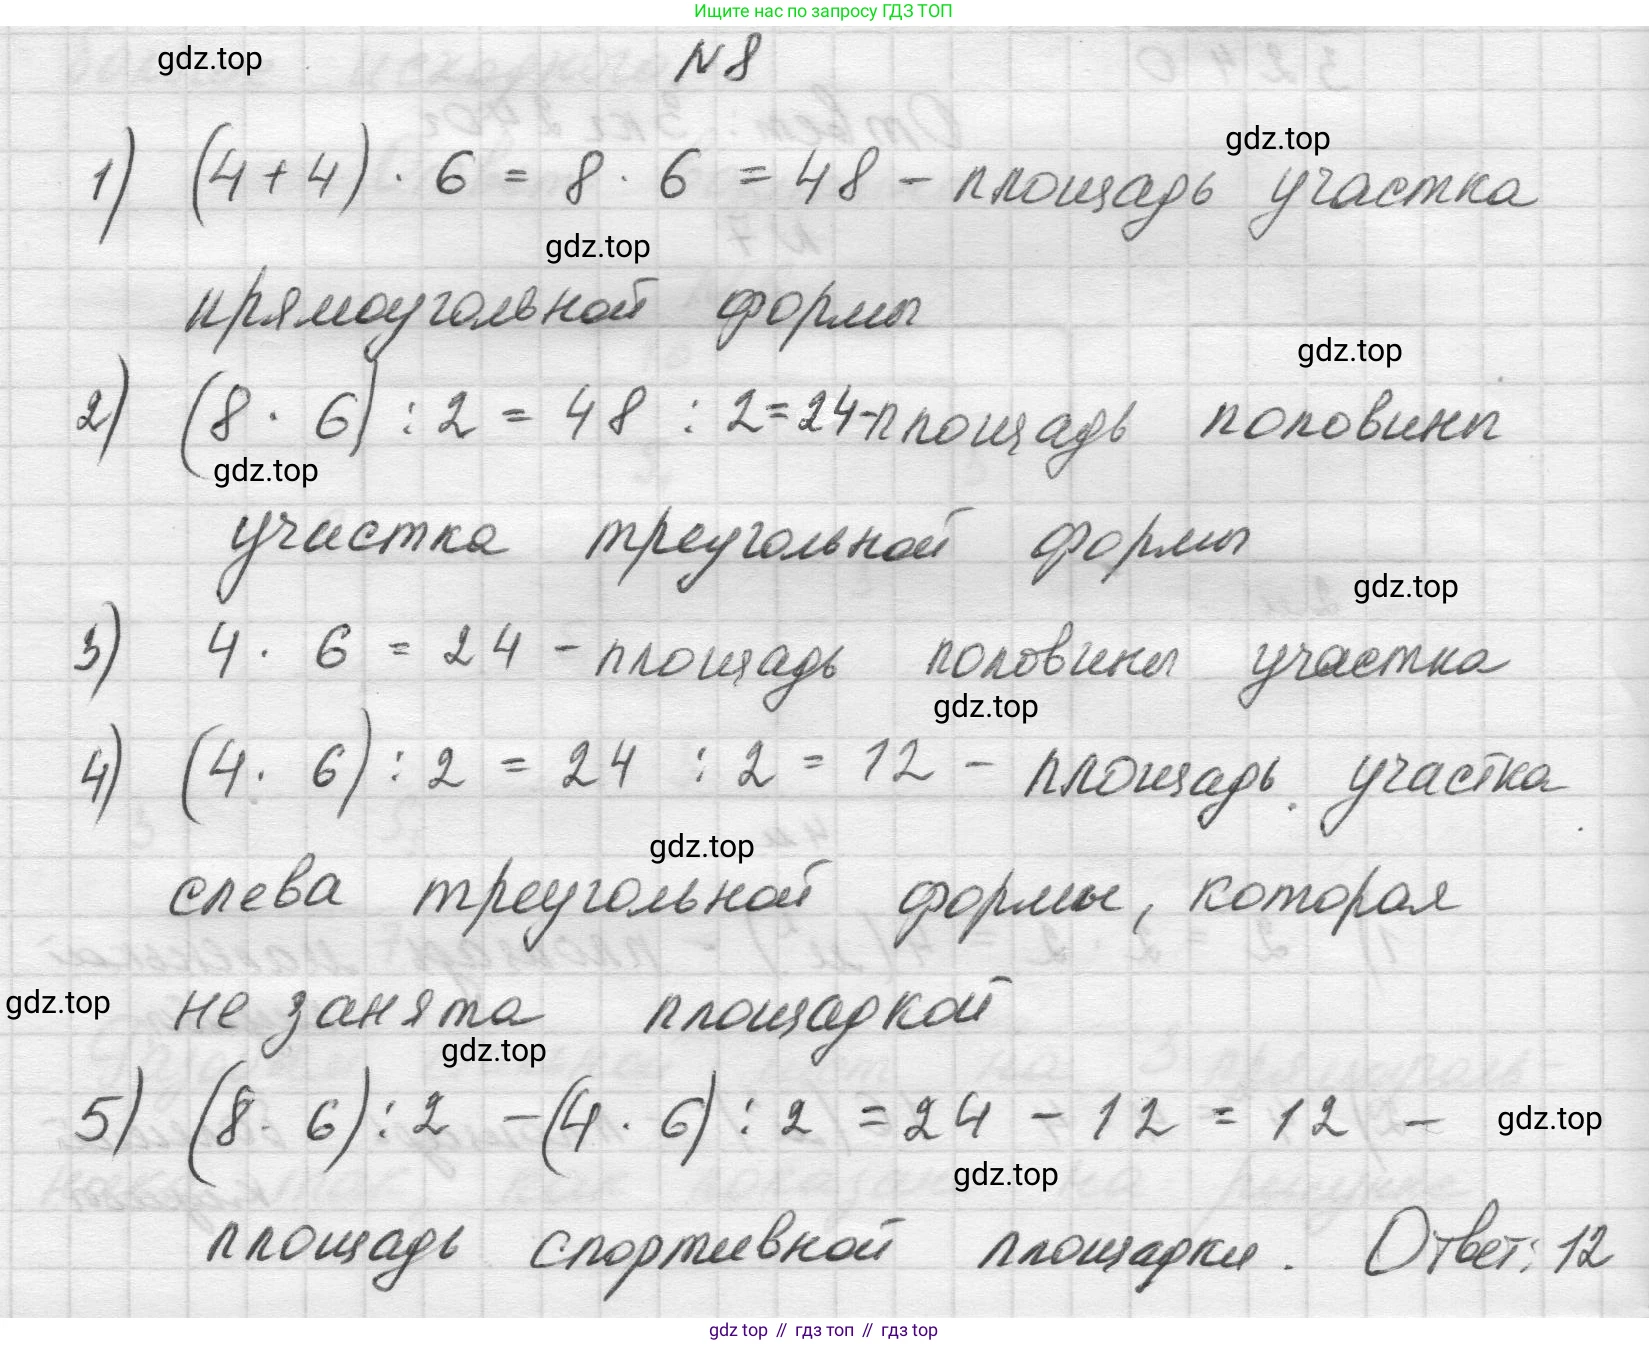 Ищите нас по запросу ГДЗ ТОП
gdz.top
№ 8
gdz.top
1) (4+4) · 6 = 8 · 6 = 48 - площадь участка
gdz.top
прямоугольной формы
gdz.top
2) (8 · 6) : 2 = 48 : 2 = 24 - площадь половины
gdz.top
участка треугольной формы
gdz.top
3) 4 · 6 = 24 - площадь половины участка
gdz.top
4) (4 · 6) : 2 = 24 : 2 = 12 - площадь участка
gdz.top
слева треугольной формы, которая
gdz.top
не занята площадкой
gdz.top
5) (8 · 6) : 2 - (4 · 6) : 2 = 24 - 12 = 12 -
gdz.top
gdz.top
площадь спортивной площадки. Ответ: 12
gdz top // гдз топ // gdz top